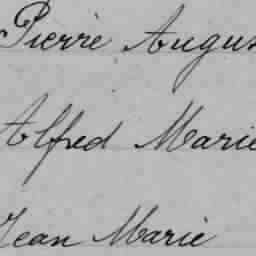 Pierre Augus
Alfred Marie
Jean Marie